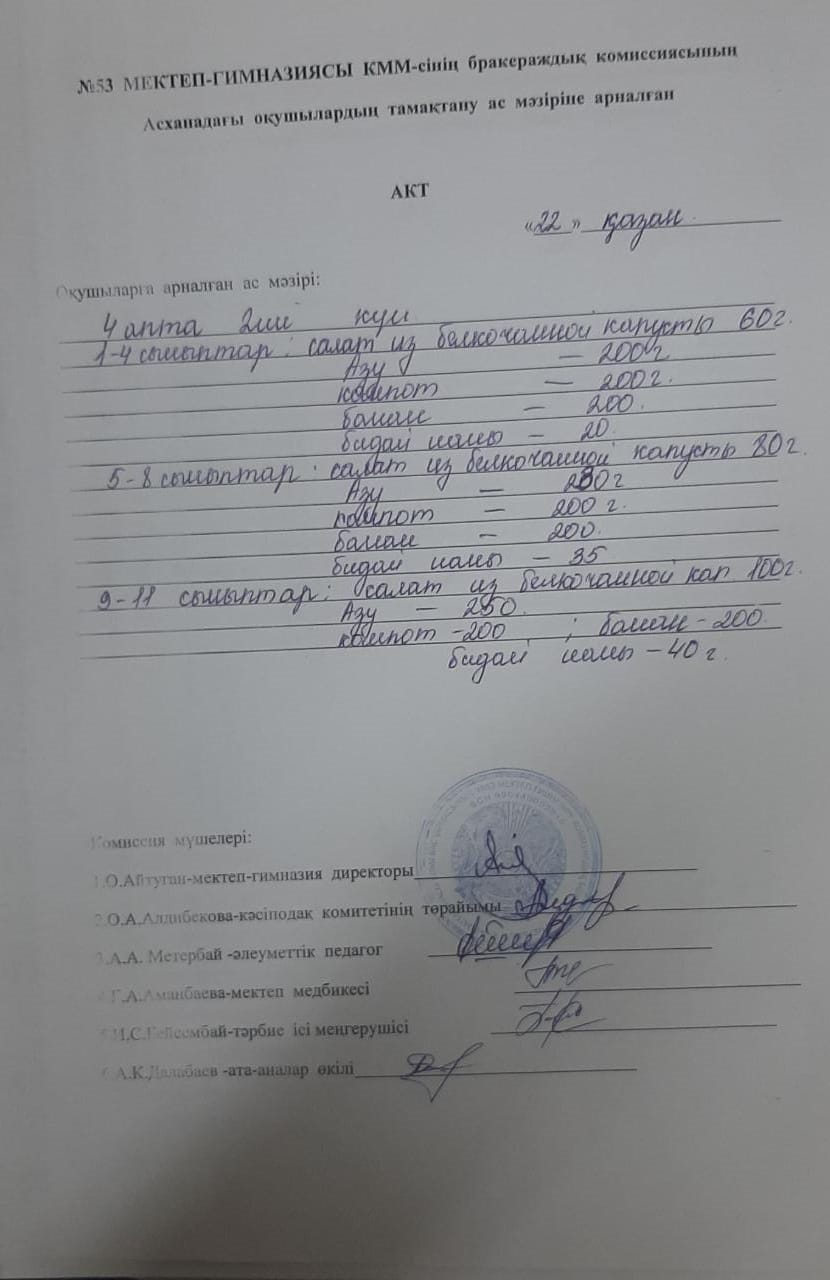 №53 МЕКТЕП-ГИМНАЗИЯСЫ КММ-сінің бракераждық комиссиясының
Асханадағы оқушылардың тамақтану ас мәзіріне арналған
АКТ
«22» қазан
Оқушыларға арналған ас мәзірі:
4 апта 2ші күн
1-4 сыныптар: салат из белкочанной капусты 60г.
Азу – 200г
компот – 200г.
банан – 200.
бидай наны – 20.
5-8 сыныптар: салат из белкочанной капусты 80г.
Азу – 230г
компот – 200 г.
банан – 200.
бидай наны – 35
9-11 сыныптар: салат из белкочанной кап 100г.
Азу – 250.
компот -200 ; банан - 200.
бидай наны – 40 г.
Комиссия мүшелері:
1.О.Айтуған-мектеп-гимназия директоры
2.О.А.Алдибекова-кәсіподақ комитетінің төрайымы
3.А.А. Метербай -әлеуметтік педагог
4.Г.А.Аманбаева-мектеп медбикесі
5.И.С.Бейсембай-тәрбие ісі меңгерушісі
6.А.К.Далабаев -ата-аналар өкілі